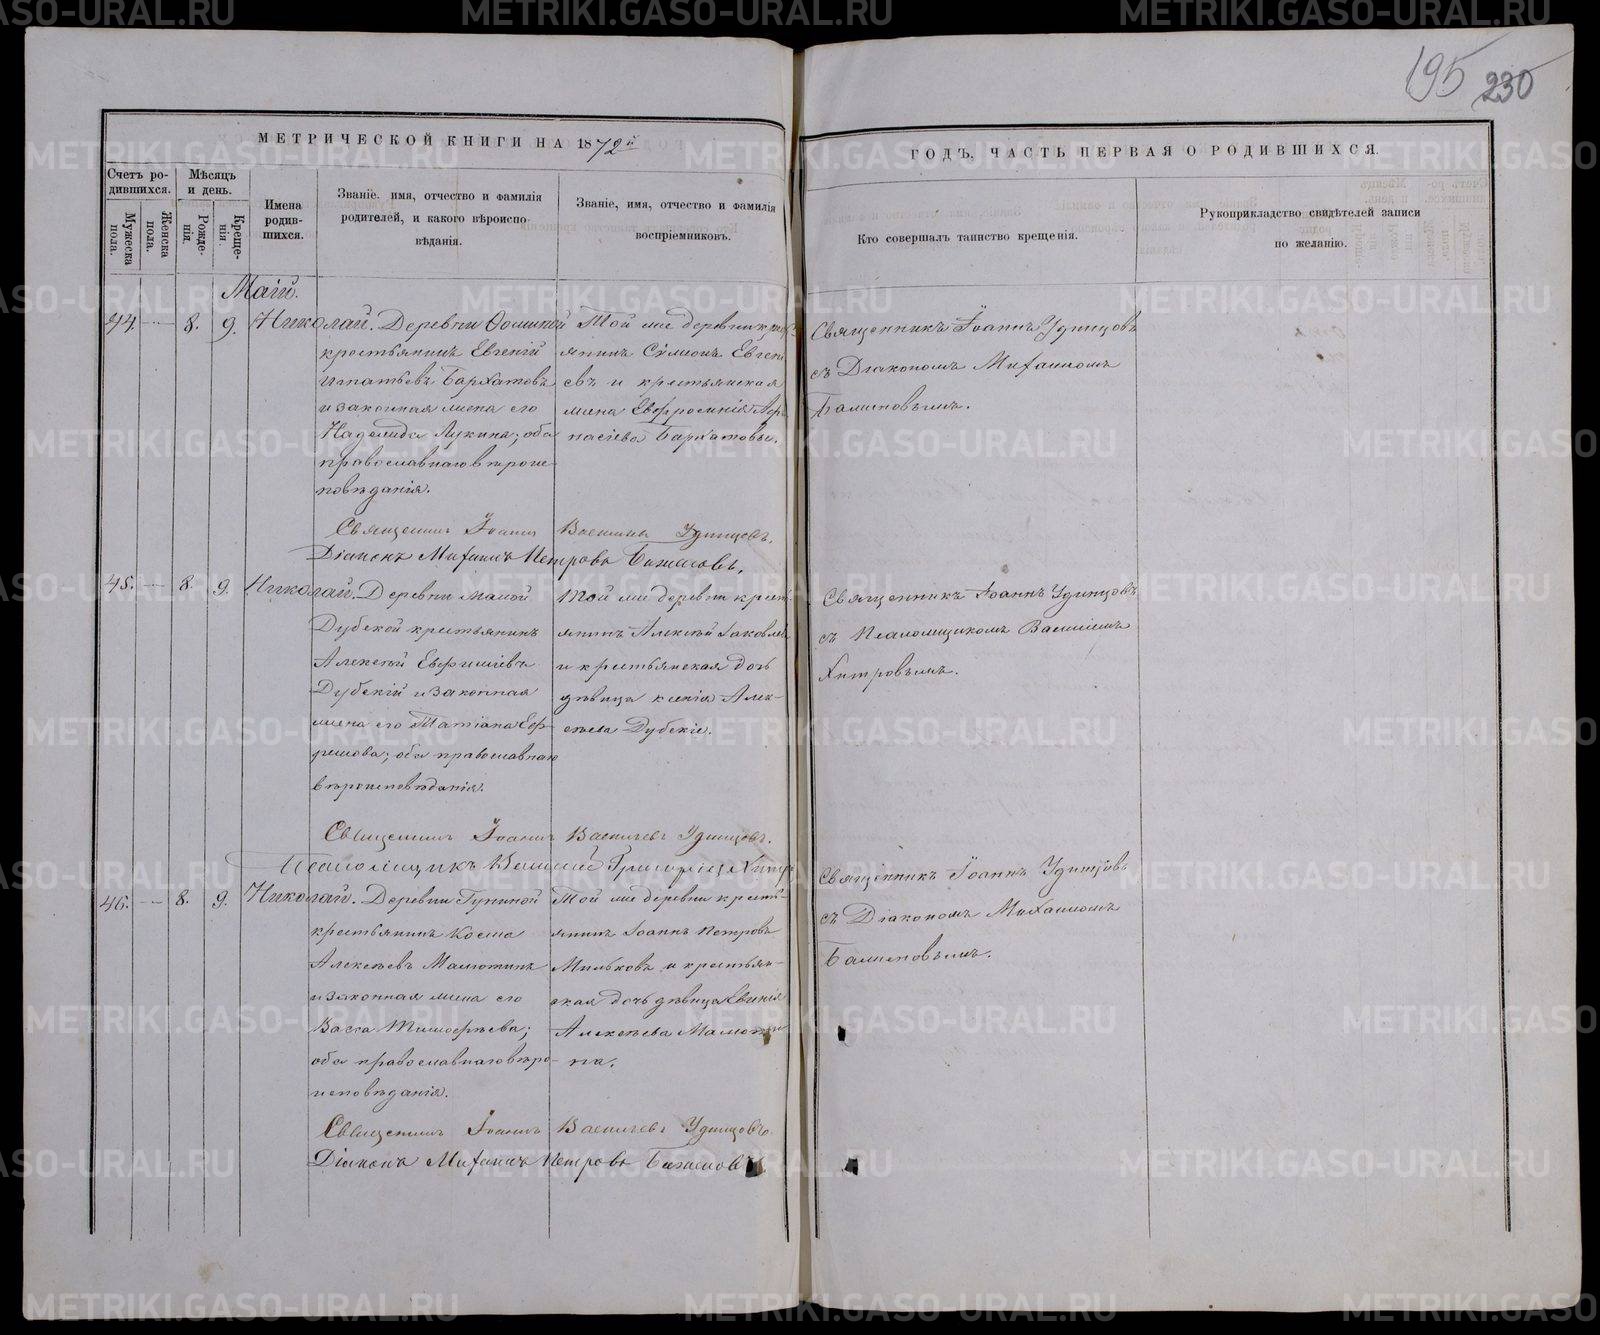 195 230
МЕТРИЧЕСКОЙ КНИГИ НА 1872й
ГОДЪ, ЧАСТЬ ПЕРВАЯ О РОДИВШИХСЯ.
Счетъ ро-
дившихся.
Мужеска
пола.
Женска
пола.
Мѣсяцъ
и день.
Рожде-
нія.
Креще-
нія.
Имена
родив-
шихся.
Званіе, имя, отчество и фамилія
родителей, и какого вѣроиспо-
вѣданія.
Званіе, имя, отчество и фамилія
воспріемниковъ.
Кто совершалъ таинство крещенія.
Рукоприкладство свидѣтелей записи
по желанію.
Маій.
44. 8. 9. Николай. Деревни
крестьянинъ Евгеній
Игнатьевъ Бархатовъ
и законная жена его
Надежда Лукина; оба
православнаго вѣроис-
повѣданія.
Той же деревни крест-
янинъ Симеонъ Евгені
евъ и крестьянская
жена Евфросинія Аф
насіева Бархатовы.
Священникъ Іоаннъ Удинцовъ
съ Діакономъ Михаиломъ
Бажиновымъ.
Священникъ Іоаннъ Васильевъ Удинцовъ.
Діаконъ Михаилъ Петровъ Бажиновъ.
45. 8. 9. Николай. Деревни Малой
Дубской крестьянинъ
Алексѣй Ефимиевъ
Дубскій и законная
жена его Татіана Еф-
ремова; оба православнаго
вѣроисповѣданія.
Той же деревни крест
янинъ Алексѣй Іаковлевъ
и крестьянская дочь
дѣвица Ксенія Алек-
сѣева Дубскіе.
Священникъ Іоаннъ Удинцовъ
съ Псаломщикомъ Василіемъ
Хитровымъ.
Священникъ Іоаннъ Васильевъ Удинцовъ.
Псаломщикъ Василій Григорьевъ Хитр
46. 8. 9. Николай. Деревни Гуниной
крестьянинъ Косма
Алексѣевъ Мамотинъ
и законная жена его
Васса Тимофѣева;
оба православнаго вѣро-
исповѣданія.
Той же деревни кресть-
янинъ Іоаннъ Петровъ
Мильковъ и крестьян-
ская дочь дѣвица Евгенія
Алексѣева Мамоти
на.
Священникъ Іоаннъ Удинцовъ
съ Діакономъ Михаиломъ
Бажиновымъ.
Священникъ Іоаннъ Васильевъ Удинцовъ.
Діаконъ Михаилъ Петровъ Бажиновъ
METRIKI.GASO-URAL.RU